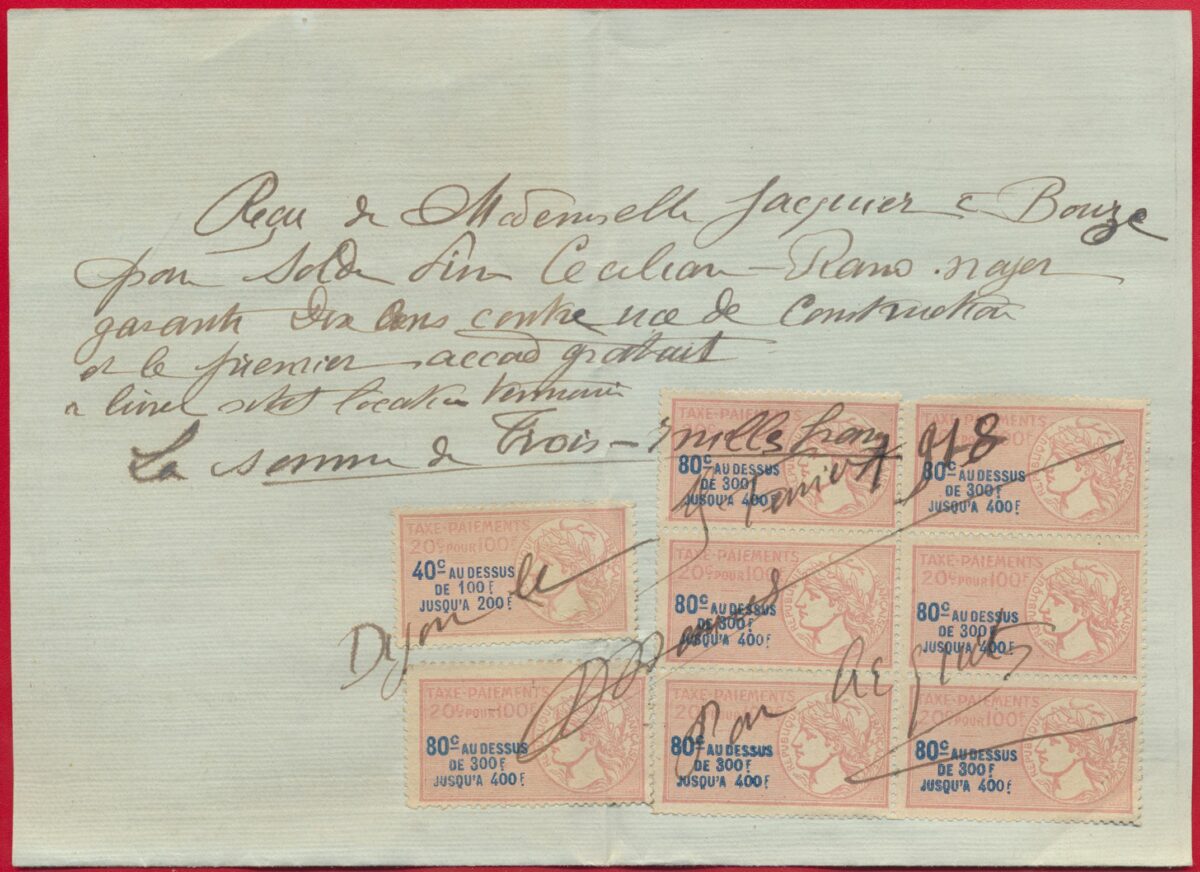 Reçu de Mademoiselle Jacquier à Bouze
pour solde d'un Cecilian-Piano noyer
garanti Dix ans contre vice de construction
et le premier accord gratuit
à livrer
La somme de Trois-mille francs
Dijon le Février 1918
Par
TAXE-PAIEMENTS
20c POUR 100F
80c AU DESSUS
DE 300F
JUSQU'A 400F
TAXE-PAIEMENTS
20c POUR 100F
80c AU DESSUS
DE 300F
JUSQU'A 400F
TAXE-PAIEMENTS
20c POUR 100F
40c AU DESSUS
DE 100F
JUSQU'A 200F
TAXE-PAIEMENTS
20c POUR 100F
80c AU DESSUS
DE 300F
JUSQU'A 400F
TAXE-PAIEMENTS
20c POUR 100F
80c AU DESSUS
DE 300F
JUSQU'A 400F
TAXE-PAIEMENTS
20c POUR 100F
80c AU DESSUS
DE 300F
JUSQU'A 400F
TAXE-PAIEMENTS
20c POUR 100F
80c AU DESSUS
DE 300F
JUSQU'A 400F
TAXE-PAIEMENTS
20c POUR 100F
80c AU DESSUS
DE 300F
JUSQU'A 400F
REPUBLIQUE FRANÇAISE